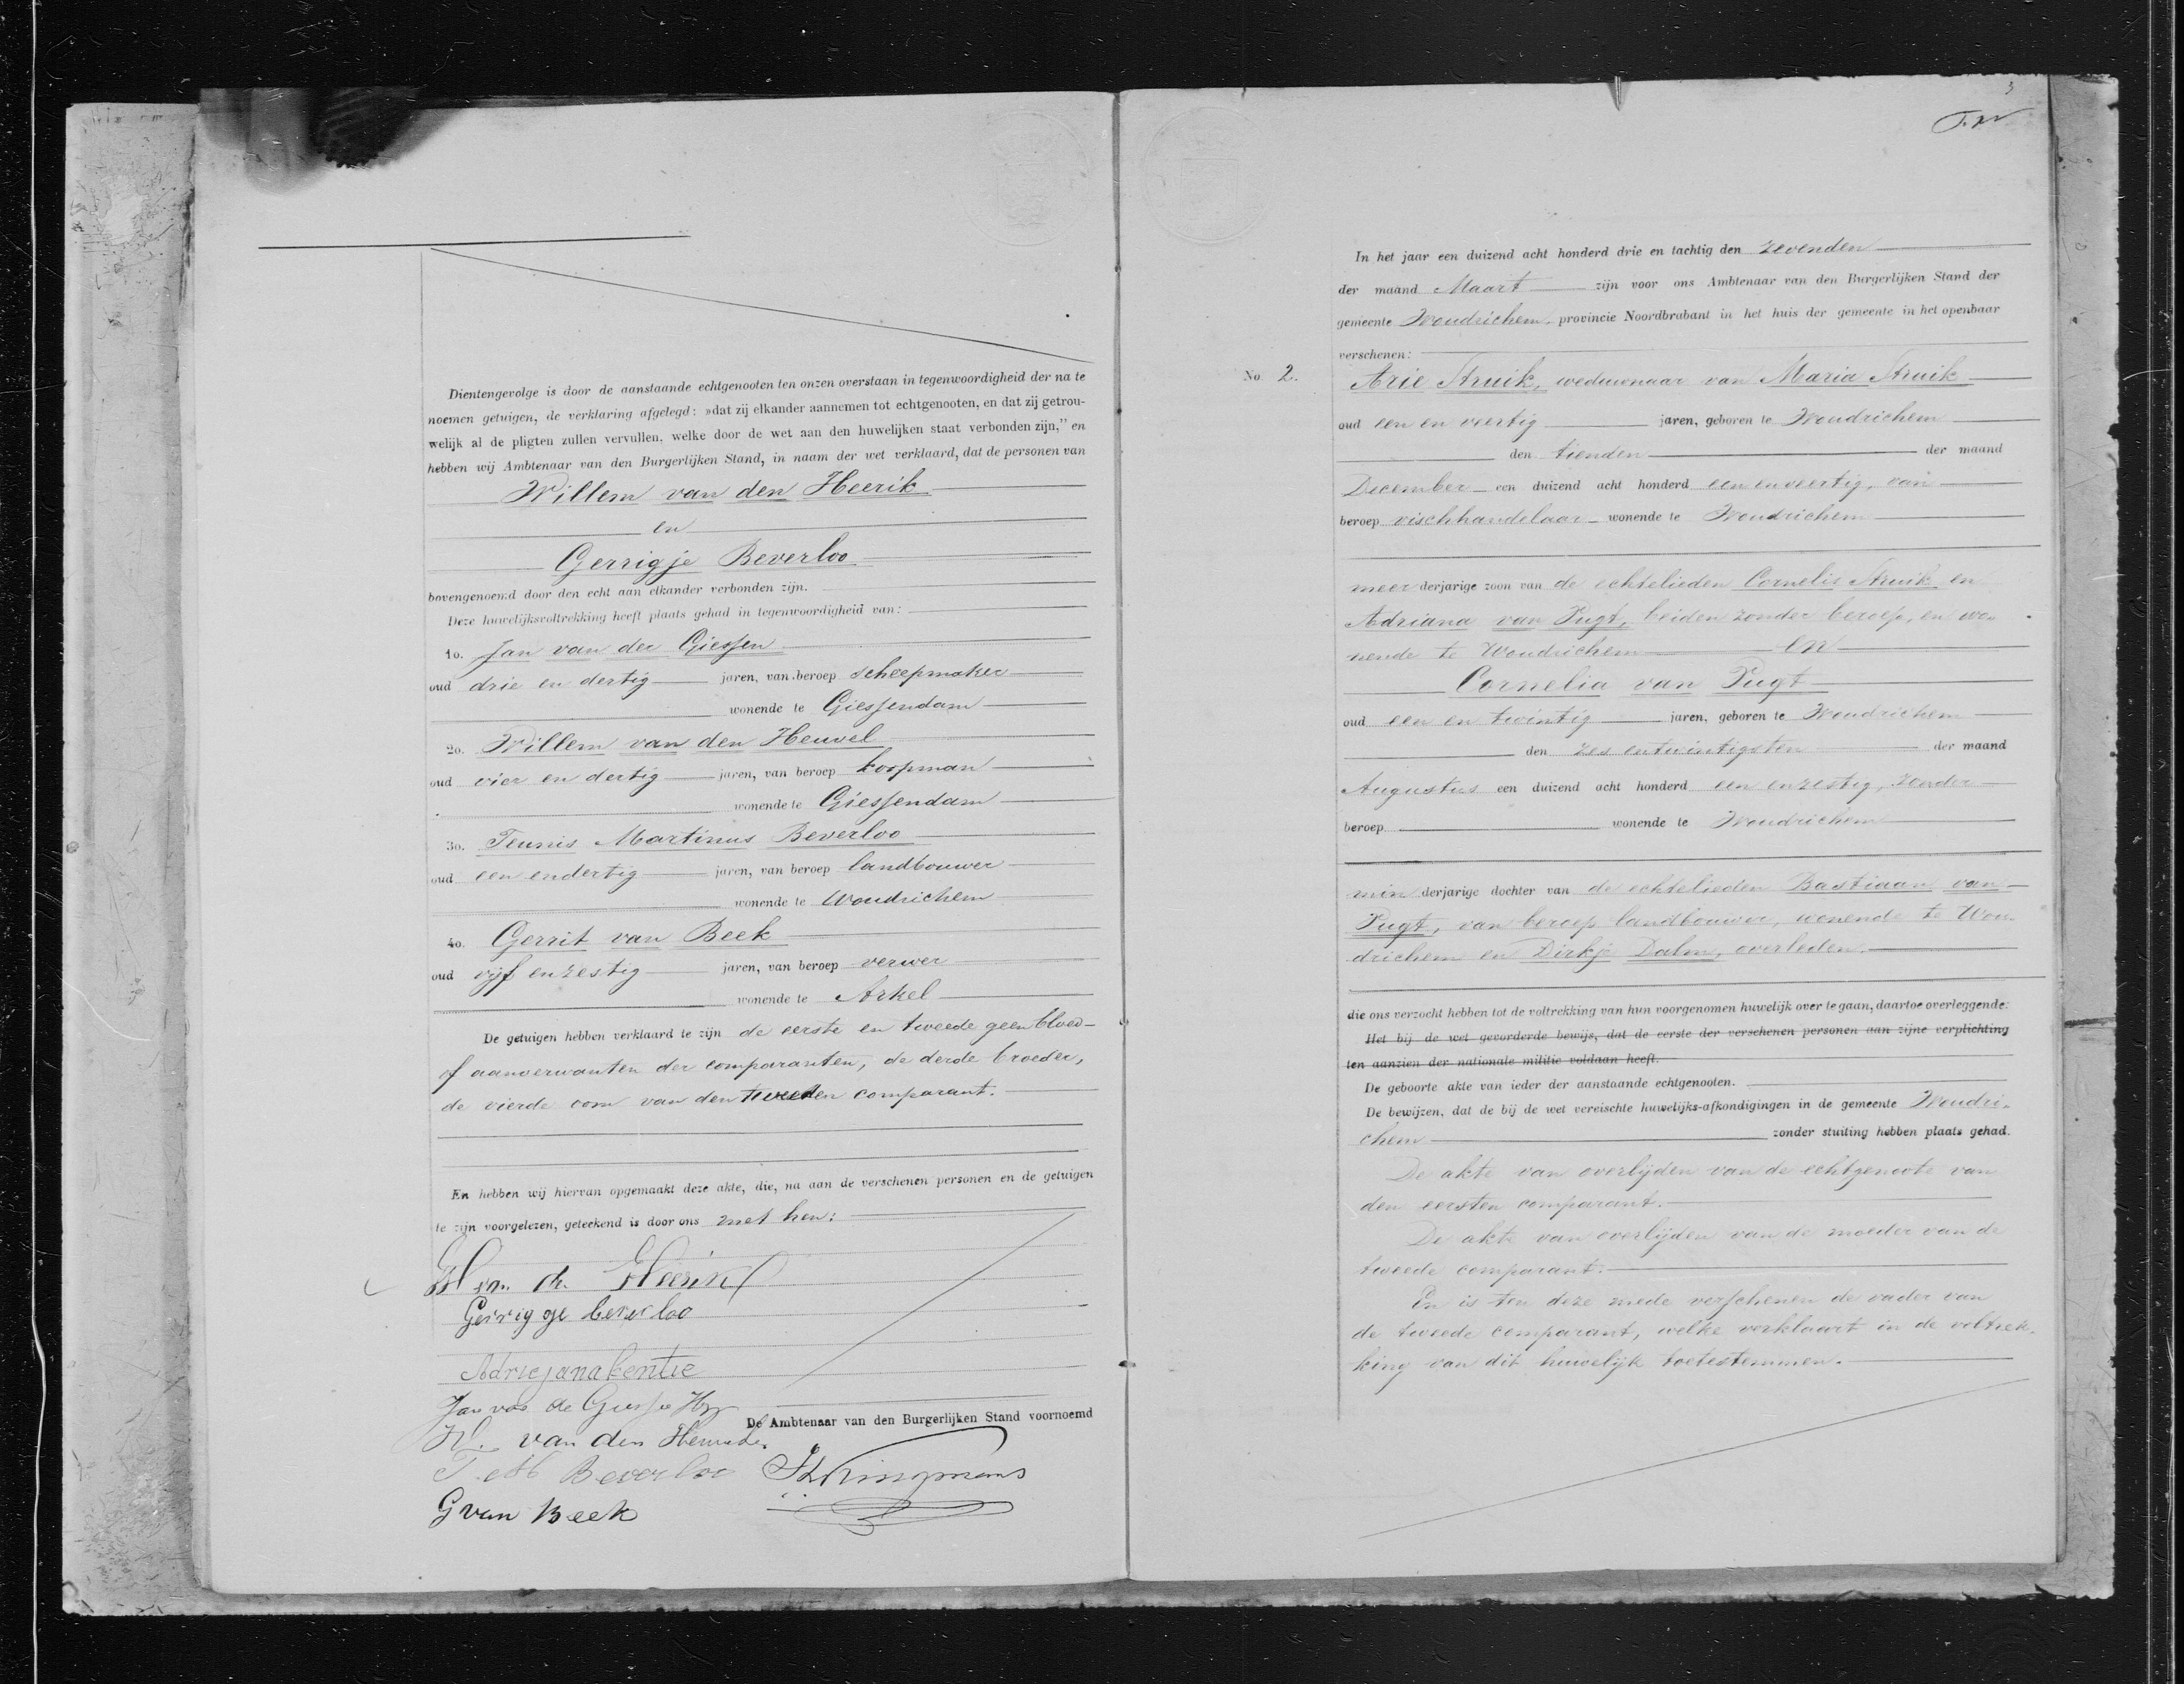 Dientengevolge is door de aanstaande echtgenooten ten onzen overstaan in tegenwoordigheid der na te
noemen getuigen, de verklaring afgelegd: »dat zij elkander aannemen tot echtgenooten, en dat zij getrou-
welijk al de pligten zullen vervullen, welke door de wet aan den huwelijken staat verbonden zijn," en
hebben wij Ambtenaar van den Burgerlijken Stand, in naam der wet verklaard, dat de personen van
Willem van den Heerik
en
Gerrigje Beverloo
bovengenoemd door den echt aan elkander verbonden zijn.
Deze huwelijksvoltrekking heeft plaats gehad in tegenwoordigheid van:
1o. Jan van der Giessen
oud drie en dertig jaren, van beroep scheepmaker
wonende te Giessendam
2o. Willem van den Heuvel
oud vier en dertig jaren, van beroep koopman
wonende te Giessendam
3o. Teunis Martinus Beverloo
oud een endertig jaren, van beroep landbouwer
wonende te Woudrichem
4o. Gerrit van Beek
oud vijf enzestig jaren, van beroep verwer
wonende te Arkel
De getuigen hebben verklaard te zijn de eerste en tweede geen bloed-
of aanverwanten der comparanten, de derde broeder,
de vierde oom van den tweeden comparant.
En hebben wij hiervan opgemaakt deze akte, die, na aan de verschenen personen en de getuigen
te zijn voorgelezen, geteekend is door ons met hen:
Heerik
Gerrigge beverloo
Adriejana kentie
Jan van de Giesse Hz
De Ambtenaar van den Burgerlijken Stand voornoemd
W. van den Heuvel
T. M Beverloo
G van Beek
3
In het jaar een duizend acht honderd drie en tachtig den zevenden
der maand Maart zijn voor ons Ambtenaar van den Burgerlijken Stand der
gemeente Woudrichem provincie Noordbrabant in het huis der gemeente in het openbaar
verschenen:
No. 2. Arie Struik, weduwenaar van Maria Struik
oud een en veertig jaren, geboren te Woudrichem
den tienden der maand
December een duizend acht honderd een enveertig, van
beroep vischhandelaar wonende te Woudrichem
meer derjarige zoon van de echtelieden Cornelis Struik en
Adriana van Pugt, beiden zonder beroep, en wo-
nende te Woudrichem en
Cornelia van Pugt
oud een en twintig jaren, geboren te Woudrichem
den zes entwintigsten der maand
Augustus een duizend acht honderd een enzestig, zonder
beroep wonende te Woudrichem
min derjarige dochter van de echtelieden Bastiaan van
Pugt, van beroep landbouwer, wonende te Wou-
drichem en Dirkje Dalm, overleden.
die ons verzocht hebben tot de voltrekking van hun voorgenomen huwelijk over te gaan, daartoe overleggende:
Het bij de wet gevorderde bewijs, dat de eerste der verschenen personen aan zijne verplichting
ten aanzien der nationale militie voldaan heeft.
De geboorte akte van ieder der aanstaande echtgenooten.
De bewijzen, dat de bij de wet vereischte huwelijks-afkondigingen in de gemeente Woudri-
chem zonder stuiting hebben plaats gehad.
De akte van overlijden van de echtgenoote van
den eersten comparant.
De akte van overlijden van de moeder van de
tweede comparant.
En is ten deze mede verschenen de vader van
de tweede comparant, welke verklaart in de voltrek-
king van dit huwelijk toetestemmen.